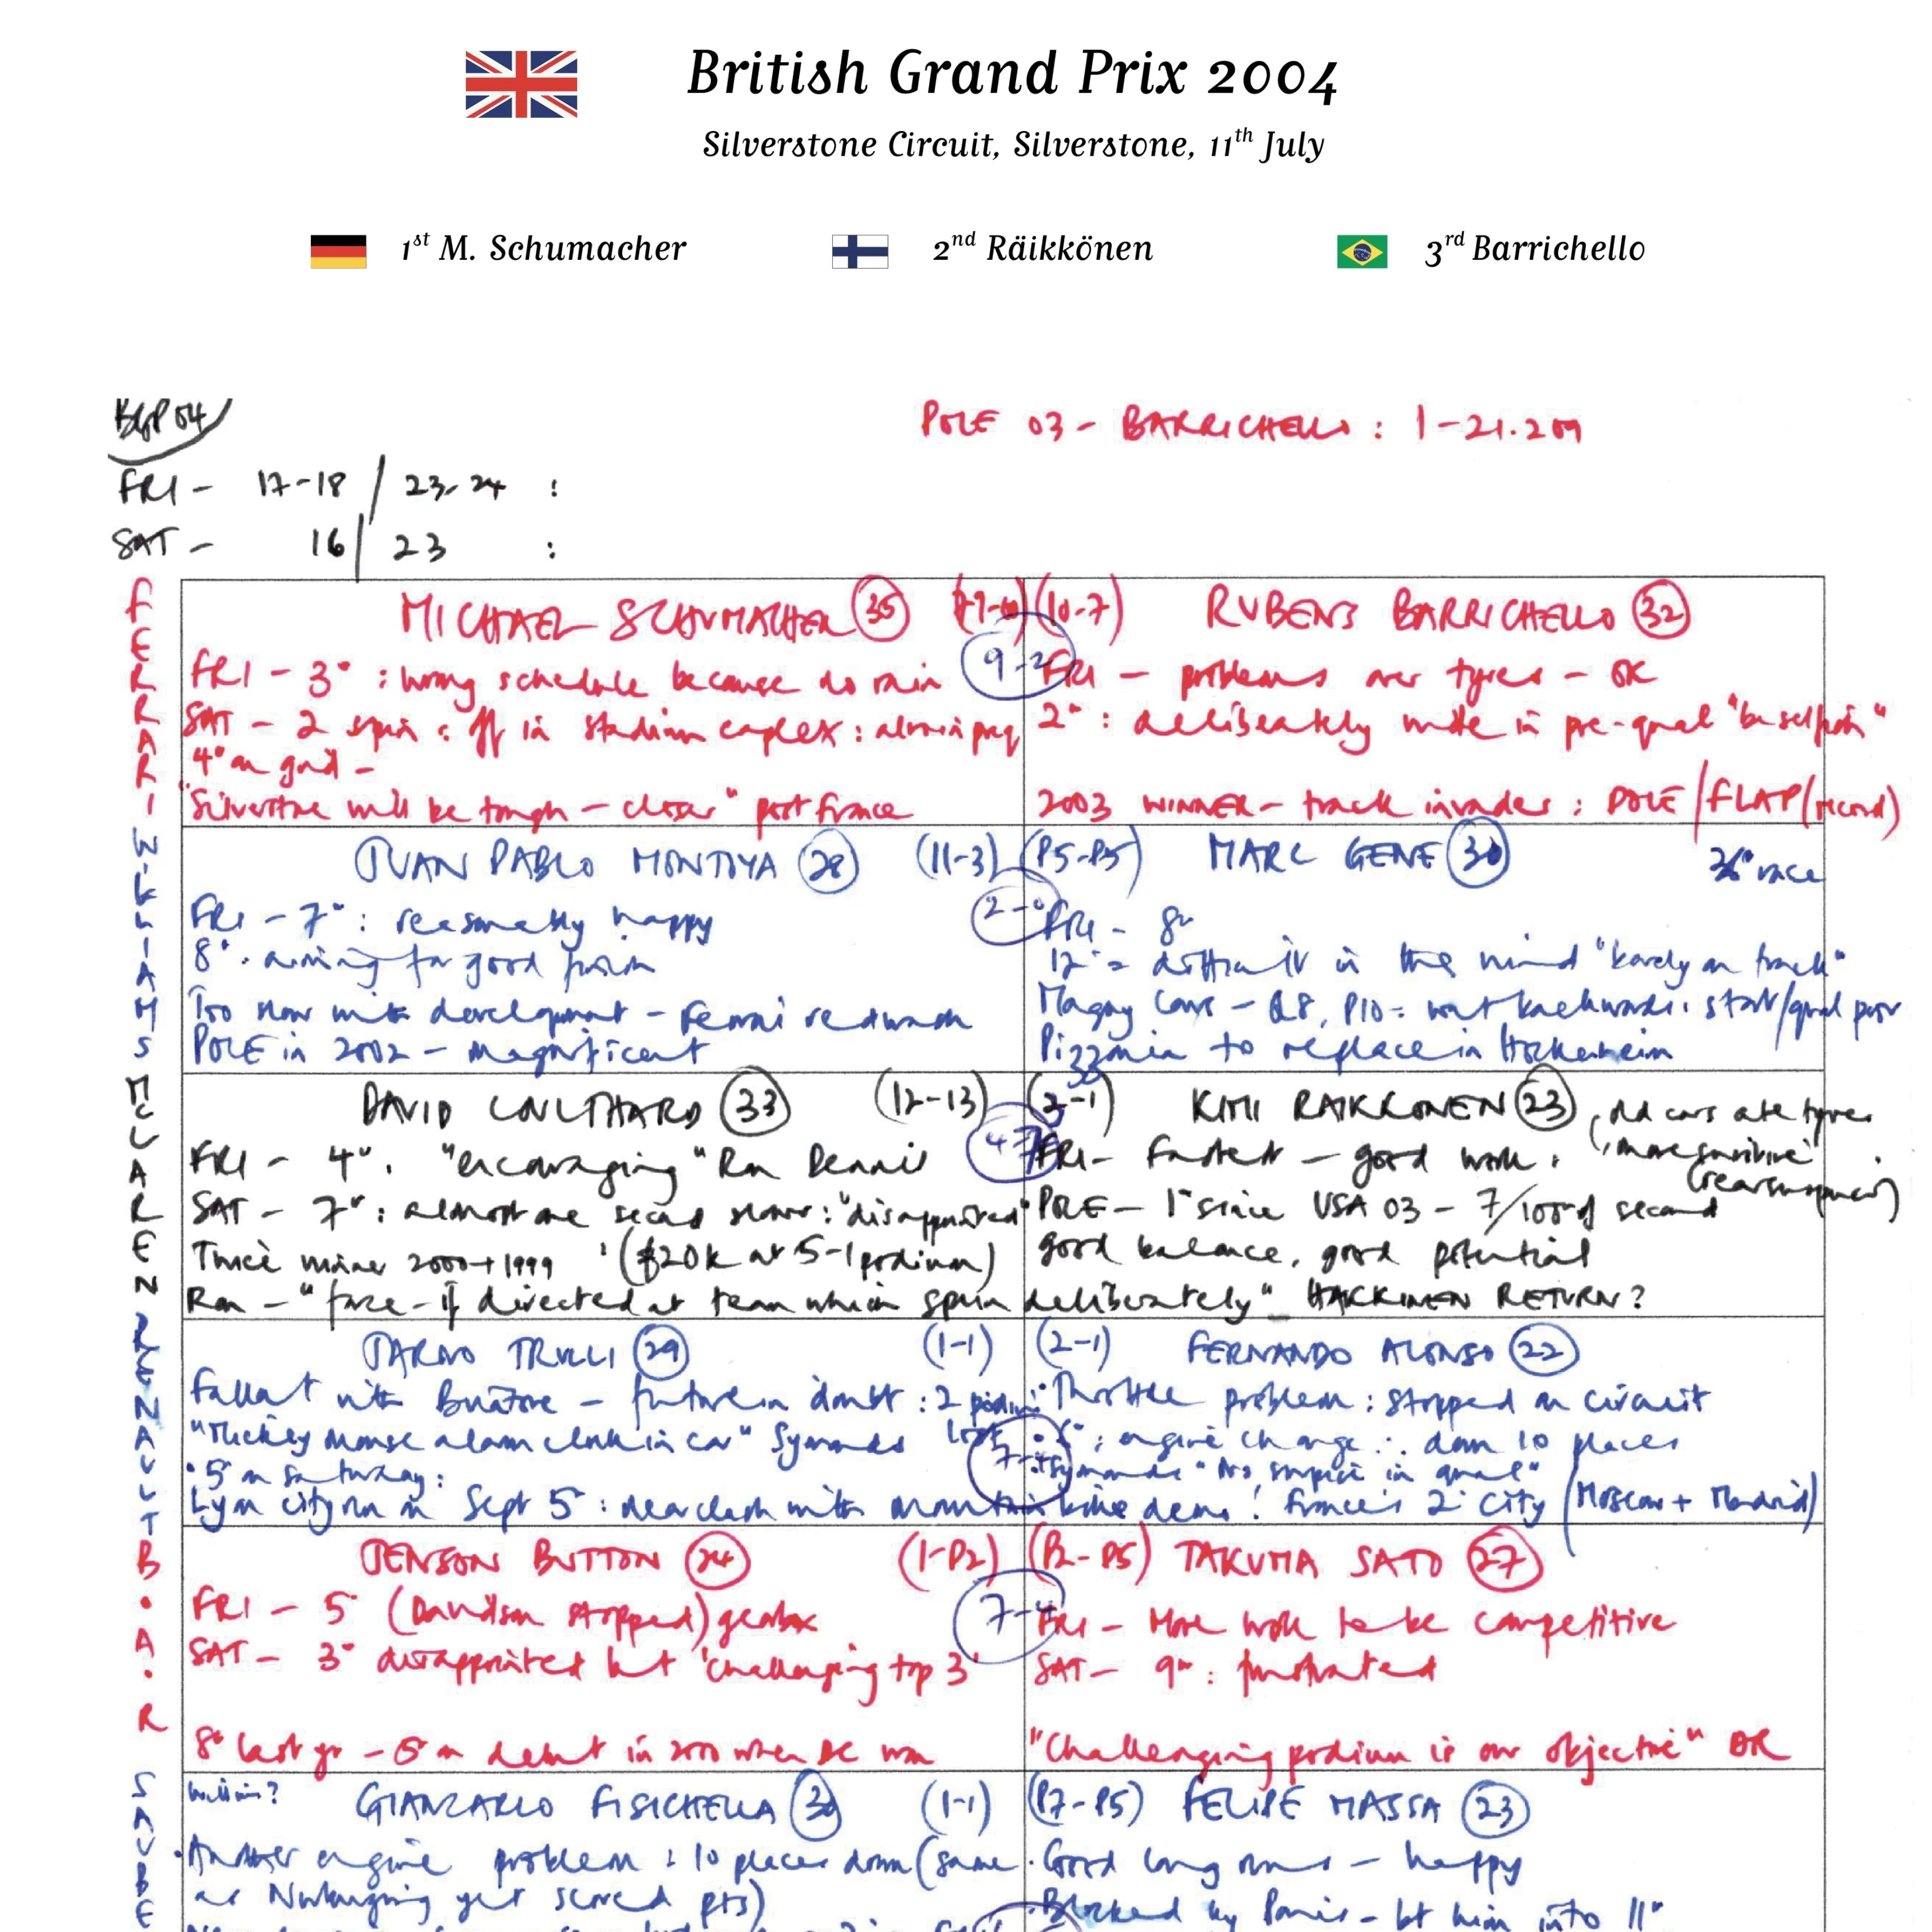 British Grand Prix 2004
Silverstone Circuit, Silverstone, 11th July
1st M. Schumacher
2nd Räikkönen
3rd Barrichello
BGP 04
POLE 03 - BARRICHELLO : 1-21.209
FRI - 17-18 / 23-24 :
SAT - 16 / 23 :
FERRARI
MICHAEL SCHUMACHER 35
FRI - 3° : wrong schedule because no rain
SAT - 2 spin : off in stadium complex :
4° on grid -
"Silverstone will be tough - closer" post France
9-2
(10-7) RUBENS BARRICHELLO 32
FRI - problems over tyres - OK
2° : deliberately wide in pre-qual
2003 WINNER - track invader : POLE / FLAP (record)
WILLIAMS
JUAN PABLO MONTOYA 28 (11-3)
FRI - 7° : reasonably happy
8° . aiming for good finish
Too slow with development - Ferrari
POLE in 2002 - magnificent
2-0
(P5-P5) MARC GENE 30 36° race
FRI - 8°
12° = difficult in the wind "barely on track"
Magny Cours - Q8, P10 = went backwards . start/qual poor
Pizzonia to replace in Hockenheim
McLAREN
DAVID COULTHARD 33 (12-13)
FRI - 4° . "encouraging" Ron Dennis
SAT - 7° : almost one second slower : "disappointed"
Twice winner 2000 + 1999 (£20k at 5-1 podium)
Ron - "farce - if directed at team which spun deliberately" HAKKINEN RETURN?
4-7
KIMI RAIKKONEN 23 old cars ate tyres
FRI - Fastest - good work . more sensitive
POLE - 1° since USA 03 - 7/100 of second
good balance, good potential
RENAULT
JARNO TRULLI 29 (1-1)
Fallout with Briatore - future in doubt :
"Mickey mouse alarm clock in car" Symonds
• 5° on Saturday :
Lyon city run on Sept 5 : near clash with mountain bike demo ! France's 2° city (Moscow + Madrid)
(2-1) FERNANDO ALONSO 22
• Throttle problem : stopped on circuit
• 6° ; engine change ∴ down 10 places
Symonds "No surprise in qual"
B.A.R
JENSON BUTTON 24 (1-P2)
FRI - 5° (Davidson stopped) gearbox
SAT - 3° disappointed but 'challenging top 3'
8° last yr - 5° on debut in 2000 when DC won
7-4
(P2-P5) TAKUMA SATO 27
FRI - More work to be competitive
SAT - 9° : frustrated
"Challenging podium is our objective" DR
SAUBE
Williams? GIANCARLO FISICHELLA 30 (1-1)
• Another engine problem : 10 places down (same
as Nurburgring yet scored pts)
(P7-P5) FELIPE MASSA 23
• Good long runs - happy
• Blocked by Panis - let him into 11°